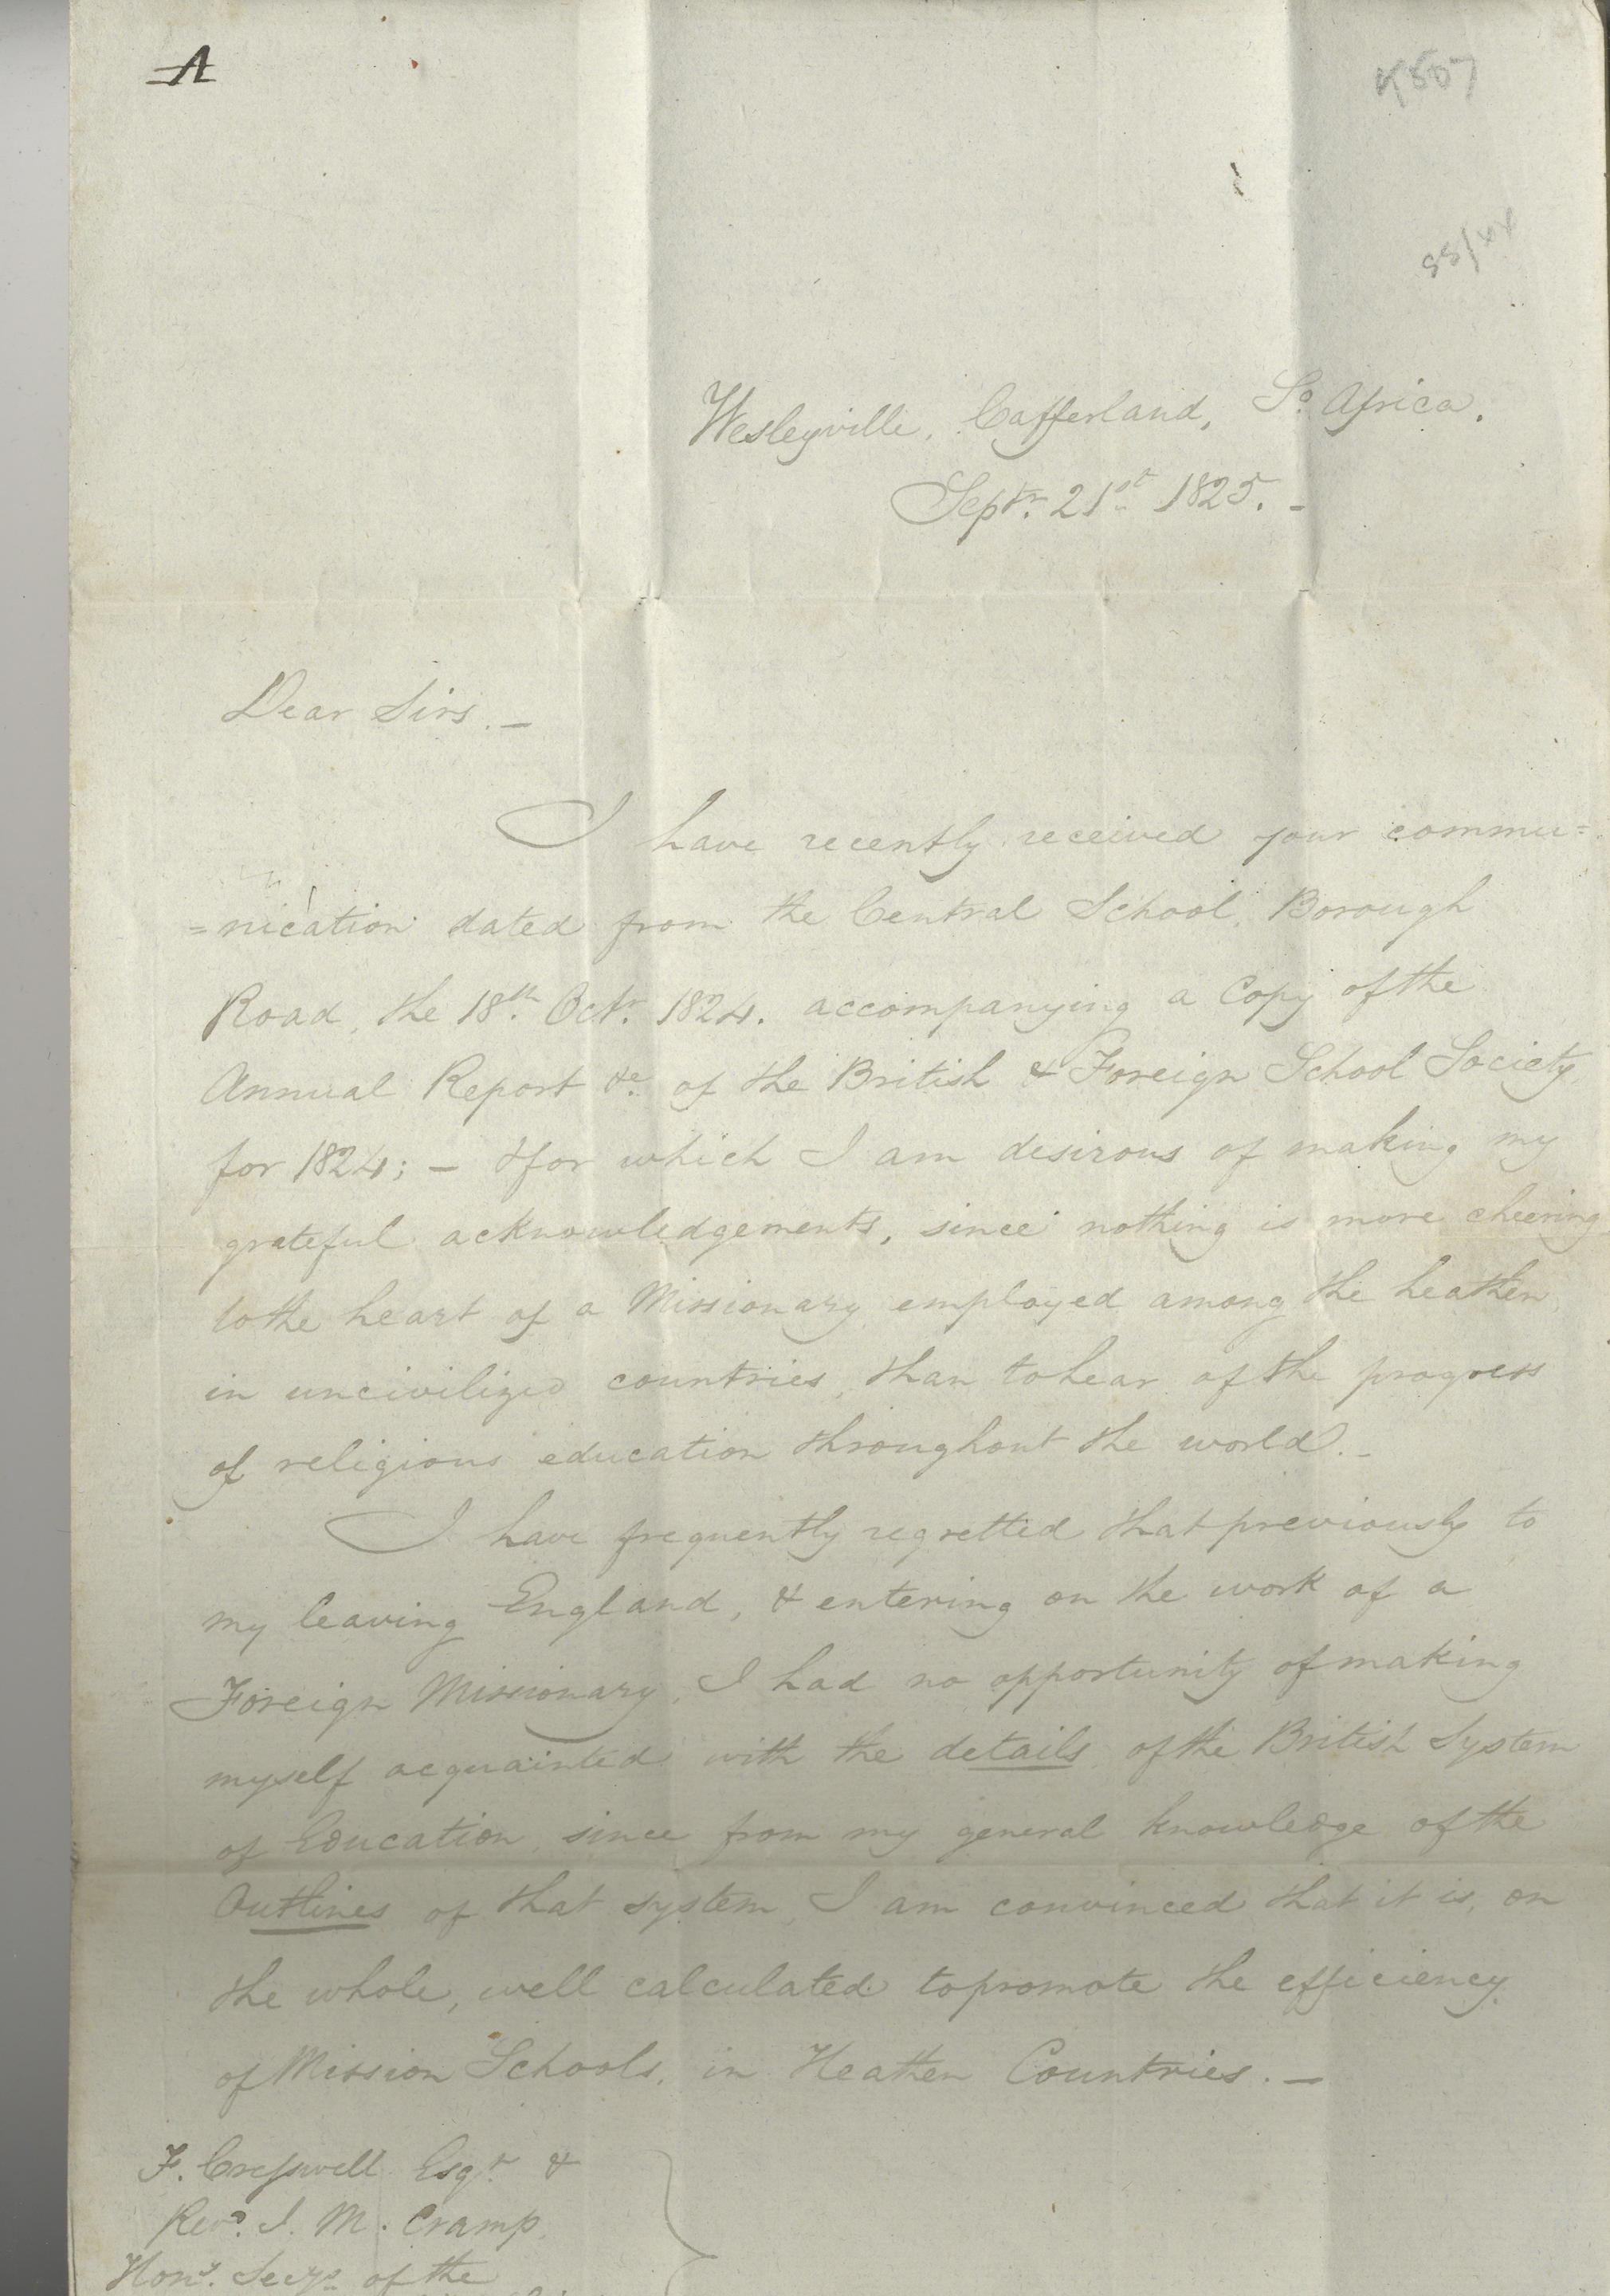 A
K507
Wesleyville, Cafferland, So. Africa.
Septr. 21st 1825. –
Dear Sirs. –
I have recently received your commu=
=nication dated from the Central School, Borough
Road, the 18th. Octr. 1824. accompanying a Copy of the
Annual Report &c. of the British & Foreign School Society
for 1824; – & for which I am desirous of making my
grateful acknowledgements, since nothing is more cheering
to the heart of a Missionary employed among the heathen
in uncivilized countries, than to hear of the progress
of religious education throughout the world. –
I have frequently regretted that previously to
my leaving England, & entering on the work of a
Foreign Missionary, I had no opportunity of making
myself acquainted with the details of the British System
of Education, since from my general knowledge of the
Outlines of that system, I am convinced that it is, on
the whole, well calculated to promote the efficiency
of Mission Schools, in Heathen Countries. –
F. Cresswell Esqr. &
Revd. J. M. Cramp,
Hony. Secys. of the